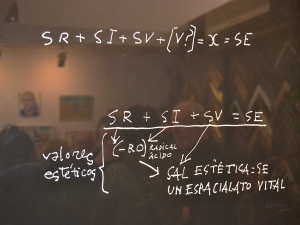 SR + SI + SV + [V?] = X = SE
SR + SI + SV = SE
valores
estéticos
(-RO) RADICAL
ÁCIDO
SAL ESTÉTICA: SE
UN ESPACIALATO VITAL